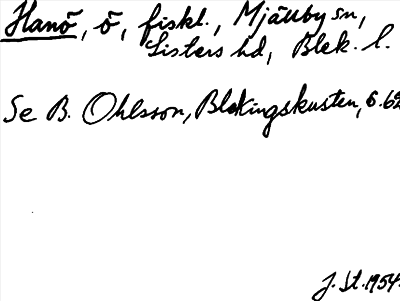 Hanö, ö, fiskl., Mjällby sn,
Listers hd, Blek. l.
Se B. Ohlsson, Blekingskusten, s. 62
J. St. 1954.